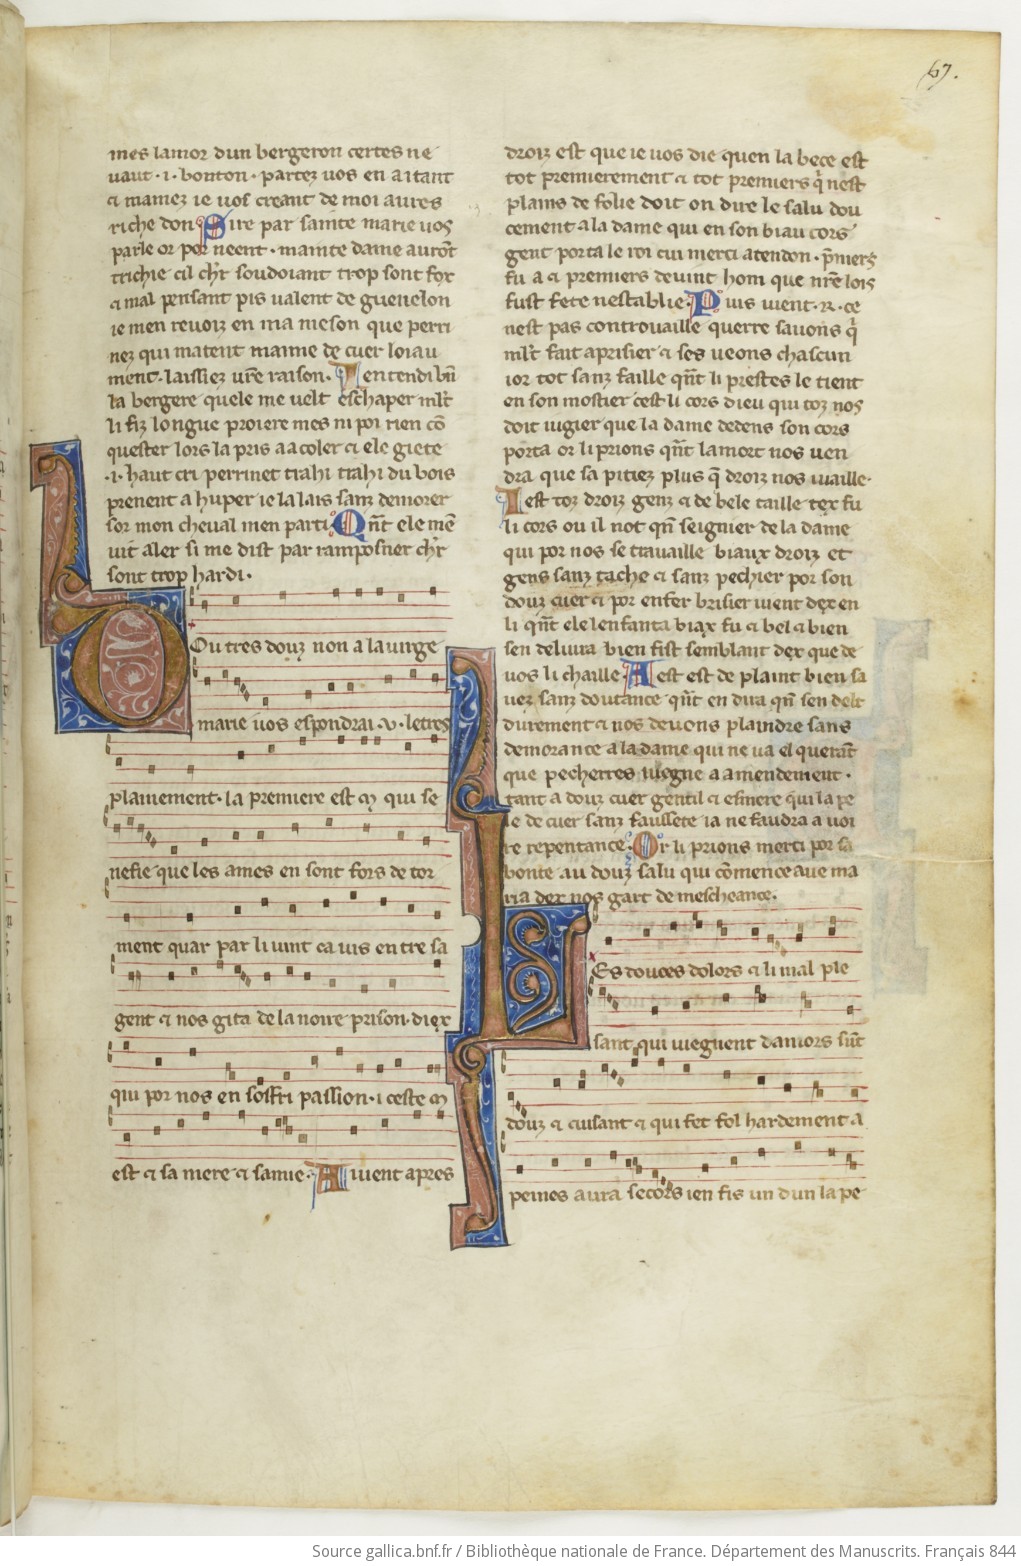 67.
mes lamor dun bergeron certes ne
uaut ·i· bouton· partez uos en aitant
⁊ mamez ie uos creant de moi aures
riche don Sire par sainte marie uos
parle or por neent· mainte dame auront
trichie cil chr soudoiant trop sont fox
⁊ mal pensant pis ualent de guenelon
ie men reuois en ma meson que perri
nez qui matent maime de cuer loiau
ment· laissiez ure raison· Ientendi bn
la bergere quele me uelt eschaper mlt
li fiz longue proiere mes ni poi rien co
quester lors la pris a acoler ⁊ ele giete
·i· haut cri perrinet trahi trahi du bois
prenent a huper ie la lais sanz demorer
sor mon cheual men parti Qnt ele me
uit aler si me dist par ramposner chr
sont trop hardi·
Dou tres douz non a la uirge
marie uos espondrai ·v· letres
plainement· la premiere est m qui se
nefie que les ames en sont fors de tor
ment quar par li uint ca uis entre sa
gent ⁊ nos gita de la noire prison· diex
qui por nos en sosfri passion· iceste m
est ⁊ sa mere ⁊ samie· A uient apres
droiz est que ie uos die quen la bece est
tot premierement ⁊ tot premiers q̃ nest
plains de folie doit on dire le salu dou
cement a la dame qui en son biau cors
gent porta le roi cui merci atendon· p̃miers
fu a ⁊ premiers deuint hom que nre lois
fust fete nestablie Puis uient ·r· ce
nest pas controuaille querre sauons q̃
mlt fait aprisier ⁊ ses ueons chascun
ior tot sanz faille qñt li prestes le tient
en son mostier cest li cors dieu qui toz nos
doit iugier que la dame dedens son cors
porta or li prions qñt la mort nos uen
dra que sa pitiez plus q̃ droiz nos uaille·
I est toz droiz genz ⁊ de bele taille tex fu
li cors ou il not qñ seignier de la dame
qui por nos se trauaille biaux droiz et
gens sanz tache ⁊ sanz pechier por son
douz cuer ⁊ por enfer brisier uient dex en
li qñt ele lenfanta biax fu ⁊ bel ⁊ bien
sen deliura bien fist semblant dex que de
uos li chaille A est est de plaint bien sa
uez sanz doutance qñt en dira qñ sen delt
durement ⁊ nos deuons plaindre sans
demorance a la dame qui ne ua el querāt
que pecherres uiegne a amendement·
tant a douz cuer gentil ⁊ esmere qui la pe
le de cuer sanz faussete ia ne faudra a uoi
re repentance Or li prions merci por sa
bonte au douz salu qui cōmence aue ma
ria dex nos gart de mescheance.
LEs douces dolors ⁊ li mal ple
sant qui uiegnent damors sūt
douz ⁊ cuisant ⁊ qui fet fol hardement a
peines aura secors ien fis un dun la pe
Source gallica.bnf.fr / Bibliothèque nationale de France. Département des Manuscrits. Français 844